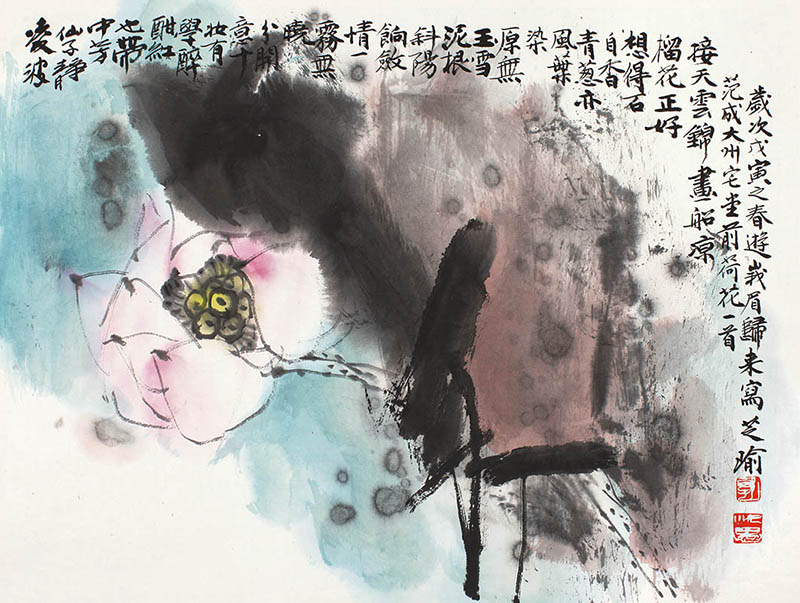 凌波
仙子靜
中芳
也帶
酣紅
學醉
妝有
意十
分開
曉
霧無
情一
餉斂
斜陽
泥根
玉雪
原無
染
風葉
青葱亦
自香
想得石
榴花正好
接天雲錦畫船凉
范成大州宅堂前荷花一首
歲次戊寅之春遊峩眉歸来寫芝瑜